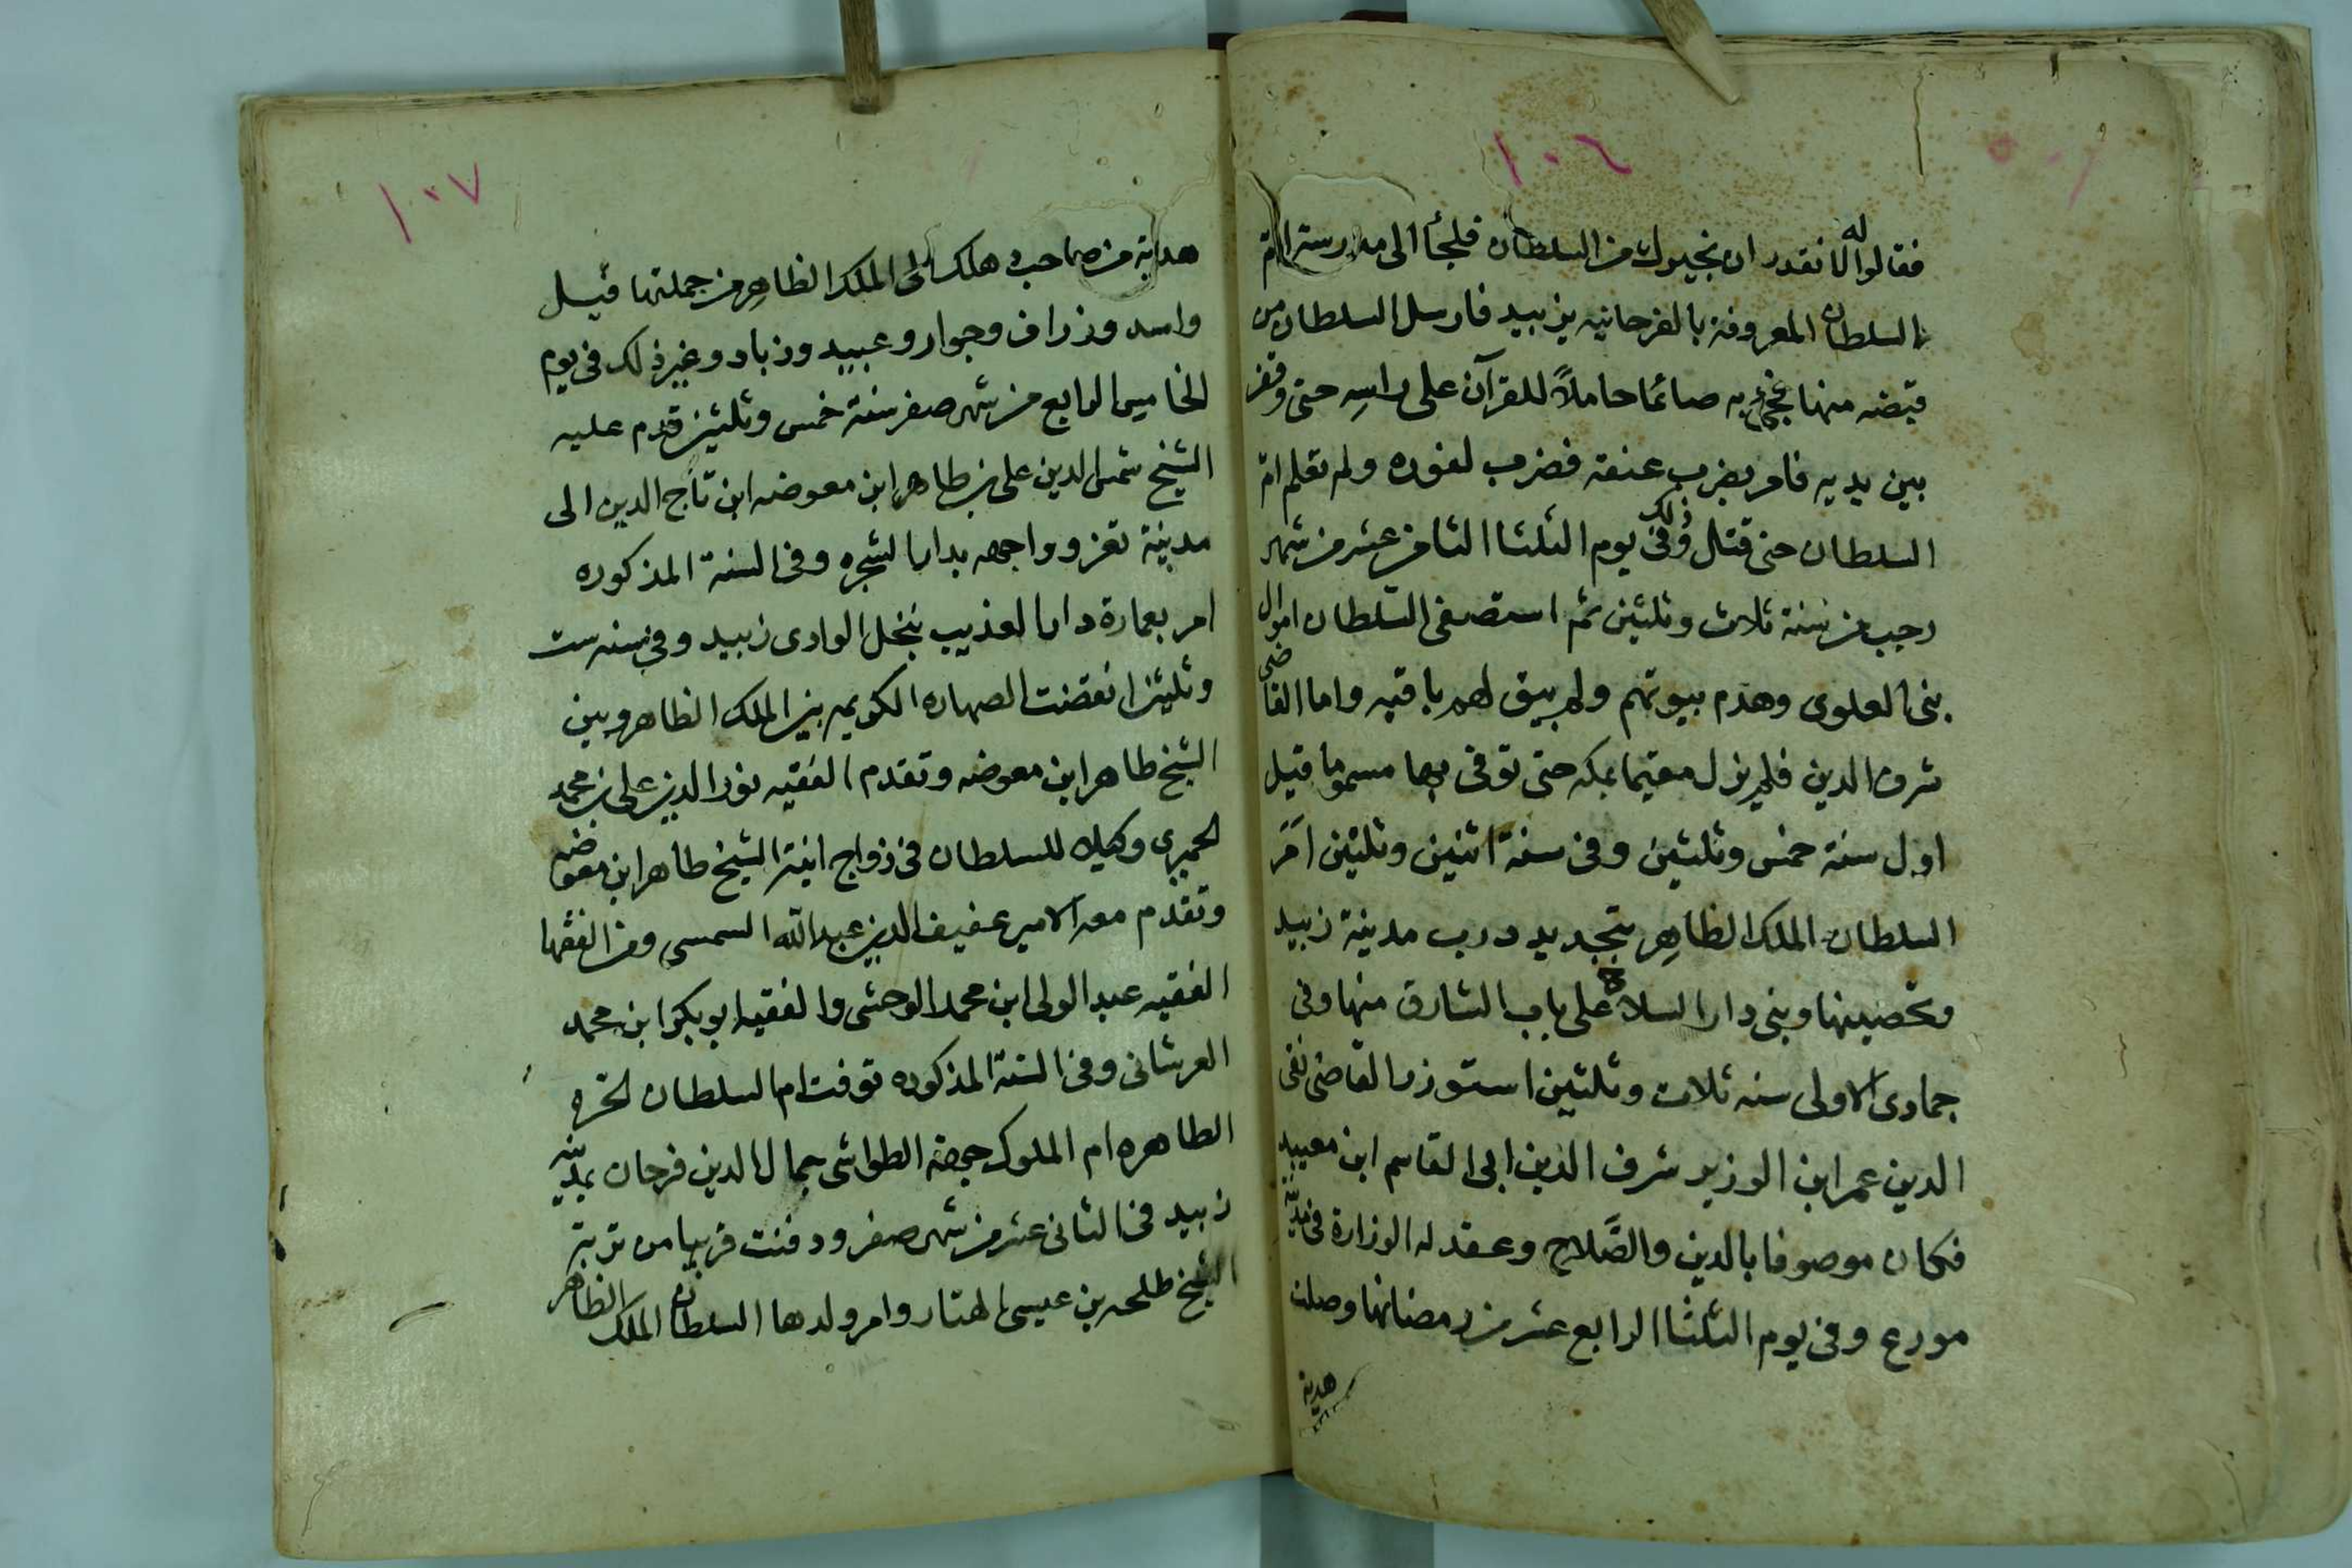 ١٠٦
فقالوا له لا نقدر ان نجيرك من السلطان فلجأ الى مدرسة ام
السلطان المعروفة بالفرحانيه بزبيد فارسل السلطان من
قبضه منها فخرج به صائما حاملاً للقرآن على راسه حتى وقف
بين يديه فامر بضرب عنقه فضرب لفوره ولم تعلم ام
السلطان حتى قتل وذلك في يوم الثلثا الثامن عشر من شهر
رجب من سنة ثلاث وثلثين ثم استصفى السلطان اموال
بنى العلوى وهدم بيوتهم ولم يبق لهم باقيه واما القاضى
شرف الدين فلم يزل مقيما بمكه حتى توفى بها مسموما قيل
اول سنة خمس وثلثين وفى سنة اثنين وثلثين امر
السلطان الملك الظاهر بتجديد درب مدينة زبيد
وتحصينها وبنى دار السلاح على باب الشارق منها وفى
جمادى الاولى سنه ثلاث وثلثين استوزر القاضى تقى
الدين عمر ابن الوزير شرف الدين ابى القاسم ابن معيبد
فكان موصوفا بالدين والصَّلاح وعقد له الوزارة فى مدينة
مورع وفى يوم الثلثا الرابع عشر من رمضانها وصلت
هدية
١٠٧
هدية من صاحب هلك الى الملك الظاهر من جملتها فيل
واسد وزراف وجوار وعبيد وزباد وغير ذلك فى يوم
الخاميس الرابع من شهر صفر سنة خمس وثلثين قدم عليه
الشيخ شمس الدين على بن طاهر ابن معوضه ابن تاج الدين الى
مدينة تعز وواجهه بدار الشجره وفى السنة المذكوره
امر بعمارة دار العذيب بنخل الوادى زبيد وفى سنه ست
وثلثين انعقدت الصهاره الكريمه بين الملك الظاهر وبين
الشيخ طاهر ابن معوضه وتقدم الفقيه نور الدين على بن محمد
الحميرى وكيلا للسلطان فى زواج ابنة الشيخ طاهر ابن معوضه
وتقدم معه الامير عفيف الدين عبد الله السمسى ومن الفقها
الفقيه عبد الولى ابن محمد الوحشى والفقيه ابو بكر ابن محمد
العرشانى وفى السنة المذكوره توفت ام السلطان الحره
الطاهره ام الملوك جهة الطواشى جمال الدين فرحان بمدينه
زبيد فى الثانى عشر من شهر صفر ودفنت قريبا من تربة
الشيخ طلحه بن عيسى الهتار وامر ولدها السلطان الملك الظاهر